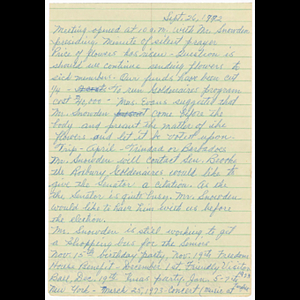 Sept. 26, 1972
Meeting opened at 10 a.m. with Mr. Snowden
presiding. Minute of silent prayer
Price of flowers has risen - Question is
should we continue sending flowers to
sick members. Our funds have been cut
To run Goldenaires program
cost Mrs. Evans suggested that
Mr. Snowden come before the
body and present the matter of the
flowers and let it be voted upon
Trip - April - Trinidad or Barbados
Mr. Snowden will contact Sen. Brooke
the Roxbury Goldenaires would like to
give the Senator a citation. As the
the Senator is quite busy Mr. Snowden
would like to have him visit us before
the election.
Mr. Snowden is still working to get
a shopping bus for the Senior
Nov. 15th birthday party, Nov. 19th Freedom
House Benefit - December 1st Friendly Visitor
Dec. 19th Xmas party, June
New York - March 25, 1973 Concert,